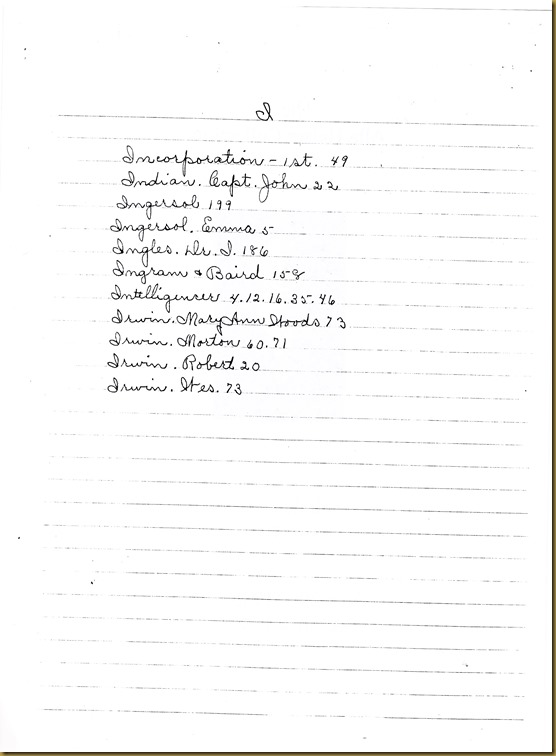 I
Incorporation - 1st. 49
Indian. Capt. John 22
Ingersol 199
Ingersol. Emma 5
Ingles. Dr. I. 186
Ingram & Baird 158
Intelligencer 4.12.16.35.46
Irwin. Mary Ann Woods 73
Irwin. Morton 60.71
Irwin. Robert 20
Irwin. Wes. 73